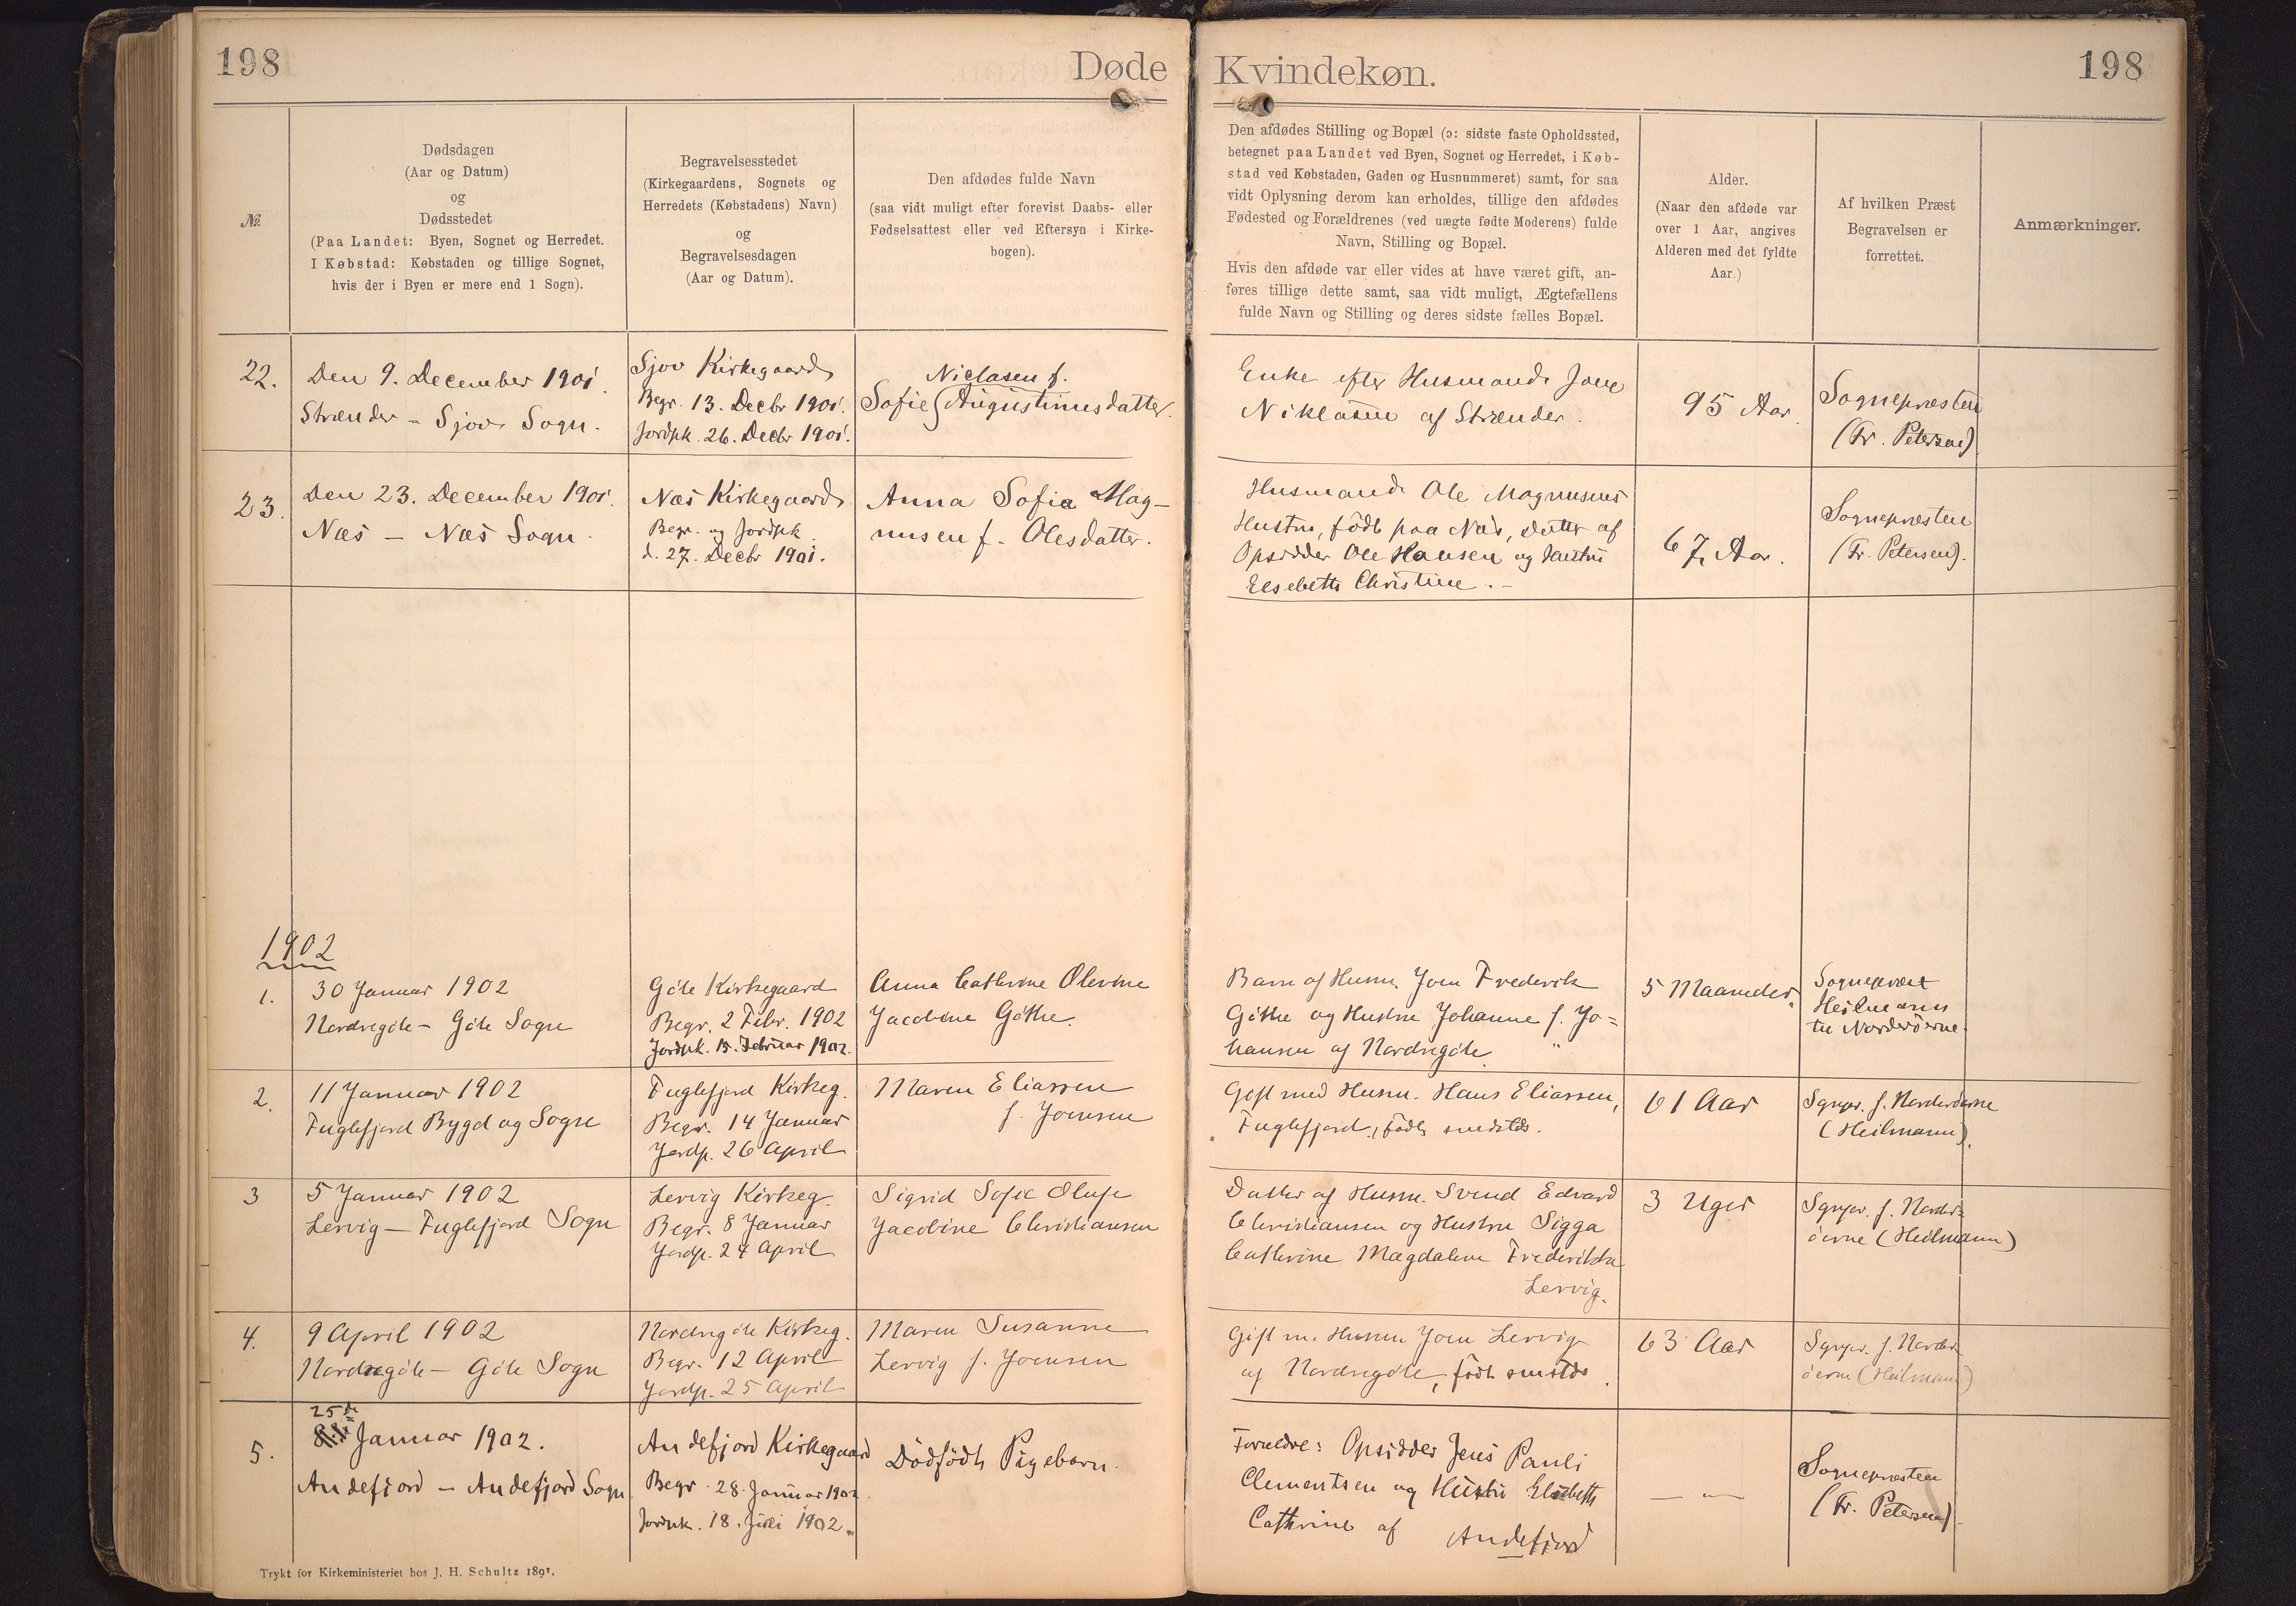 198
Døde
Kvindekøn.
198
№.
Dødsdagen
(Aar og Datum)
og
Dødsstedet
(Paa Landet: Byen, Sognet og Herredet.
I Købstad: Købstaden og tillige Sognet,
hvis der i Byen er mere end 1 Sogn).
Begravelsesstedet
(Kirkegaardens, Sognets og
Herredets (Købstadens) Navn)
og
Begravelsesdagen
(Aar og Datum).
Den afdødes fulde Navn
(saa vidt muligt efter forevist Daabs- eller
Fødselsattest eller ved Eftersyn i Kirke-
bogen).
Den afdødes Stilling og Bopæl (ɔ: sidste faste Opholdssted,
betegnet paa Landet ved Byen, Sognet og Herredet, i Køb-
stad ved Købstaden, Gaden og Husnummeret) samt, for saa
vidt Oplysning derom kan erholdes, tillige den afdødes
Fødested og Forældrenes (ved uægte fødte Moderens) fulde
Navn, Stilling og Bopæl.
Hvis den afdøde var eller vides at have været gift, an-
føres tillige dette samt, saa vidt muligt, Ægtefællens
fulde Navn og Stilling og deres sidste fælles Bopæl.
Alder.
(Naar den afdøde var
over 1 Aar, angives
Alderen med det fyldte
Aar.)
Af hvilken Præst
Begravelsen er
forrettet.
Anmærkninger.
22.
Den 9. December 1901.
Strænder - Sjov Sogn.
Sjov Kirkegaard
Begr. 13. Decbr 1901.
Jordpk. 26. Decbr 1901.
Niclasen f.
Sofie Augustinusdatter.
Enke efter Husmand Joen
Niklasen af Strænder.
95 Aar.
Sognepræsten
(Fr. Petersen)
23.
Den 23. December 1901.
Næs - Næs Sogn.
Næs Kirkegaard
Begr. og Jordpk.
d. 27. Decbr 1901.
Anna Sofia Mag-
nusen f. Olesdatter.
Husmand Ole Magnusens
Hustru, født paa Næs, Datter af
Opsidder Ole Hansen og Hustru
Elsebeth Christine. -
67 Aar.
Sognepræsten
(Fr. Petersen).
1902
1.
30 Januar 1902
Nordregøte - Gøte Sogn
Gøte Kirkegaard
Begr. 2 Febr. 1902
Jordpk. 15. Februar 1902.
Anna Cathrine Olevine
Jacobine Gøthe.
Barn af Husm. Joen Frederik
Gøthe og Hustru Johanne f. Jo=
hansen af Nordregøte "
5 Maaneder.
Sognepræst
Heilmann
til Norderøerne.
2.
11 Januar 1902
Fuglefjord Bygd og Sogn
Fuglefjord Kirkeg.
Begr. 14 Januar
Jordp. 26 April
Maren Eliassen
f. Joensen
Gift med Husm. Hans Eliassen,
Fuglefjord, født smstds.
61 Aar
Sgnpr. f. Norderøerne
(Heilmann).
3
5 Januar 1902
Lervig - Fuglefjord Sogn
Lervig Kirkeg.
Begr. 8 Januar
Jordp. 24 April
Sigrid Sofie Olufa
Jacobine Christiansen
Datter af Husm. Svend Edvard
Christiansen og Hustru Sigga
Cathrine Magdalene Frederikka
Lervig.
3 Uger
Sgnpr. f. Norder=
øerne (Heilmann)
4.
9 April 1902
Nordregøte - Gøte Sogn
Nordregøte Kirkeg.
Begr. 12 April
Jordp. 25 April
Maren Susanne
Lervig f. Joensen
Gift m. Husm Joen Lervig
af Nordregøte, født smstds.
63 Aar
Sgnpr. f. Norder
øerne (Heilmann)
5.
25de
Januar 1902.
Andefjord - Andefjord Sogn
Andefjord Kirkegaard
Begr. 28. Januar 1902.
Jordpk. 18. Juli 1902.
Dødfødt Pigebarn.
Forældre: Opsidder Jens Pauli
Clementsen og Hustru Elsebeth
Cathrine af Andefjord
— " —
Sognepræsten
(Fr. Petersen)
Trykt for Kirkeministeriet hos J. H. Schultz 1891.